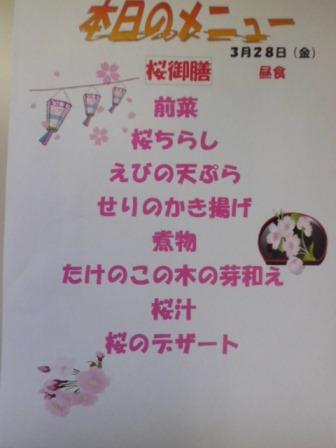 本日のメニュー
3月28日（金）
桜御膳 昼食
前菜
桜ちらし
えびの天ぷら
せりのかき揚げ
煮物
たけのこの木の芽和え
桜汁
桜のデザート